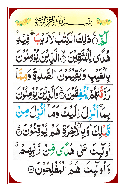 بِسْمِ اللَّهِ الرَّحْمَٰنِ الرَّحِيمِ
الٓمٓ ۝ ذَٰلِكَ الْكِتَٰبُ لَا رَيْبَ ۛ فِيهِ ۛ
هُدًى لِّلْمُتَّقِينَ ۝ الَّذِينَ يُؤْمِنُونَ
بِالْغَيْبِ وَيُقِيمُونَ الصَّلَوٰةَ وَمِمَّا
رَزَقْنَٰهُمْ يُنفِقُونَ ۝ وَالَّذِينَ يُؤْمِنُونَ
بِمَا أُنزِلَ إِلَيْكَ وَمَا أُنزِلَ مِن
قَبْلِكَ وَبِالْءَاخِرَةِ هُمْ يُوقِنُونَ ۝
أُولَٰئِكَ عَلَىٰ هُدًى مِّن رَّبِّهِمْ ۖ
وَأُولَٰئِكَ هُمُ الْمُفْلِحُونَ ۝